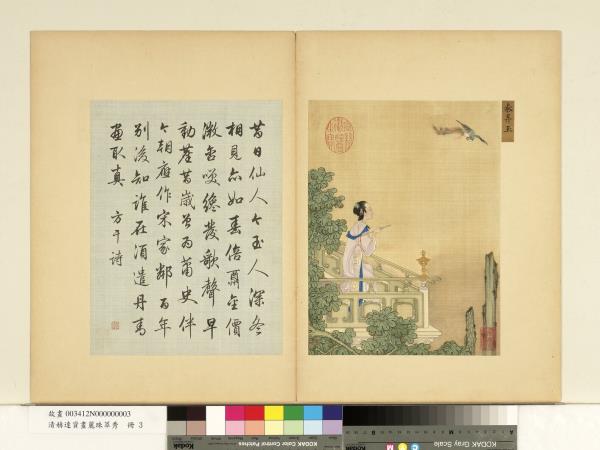 秦弄玉
昔日仙人今玉人深冬
相見亦如春倍酬金價
微含笑纔發歌聲早
動塵昔歲曾為蕭史伴
今朝應作宋家鄰百年
別後知誰在須遣丹青
畫取真 方干詩
故畫 003412N000000003
清赫達資畫麗珠萃秀 冊 3
KODAK Color Control Patches
KODAK Gray Scale